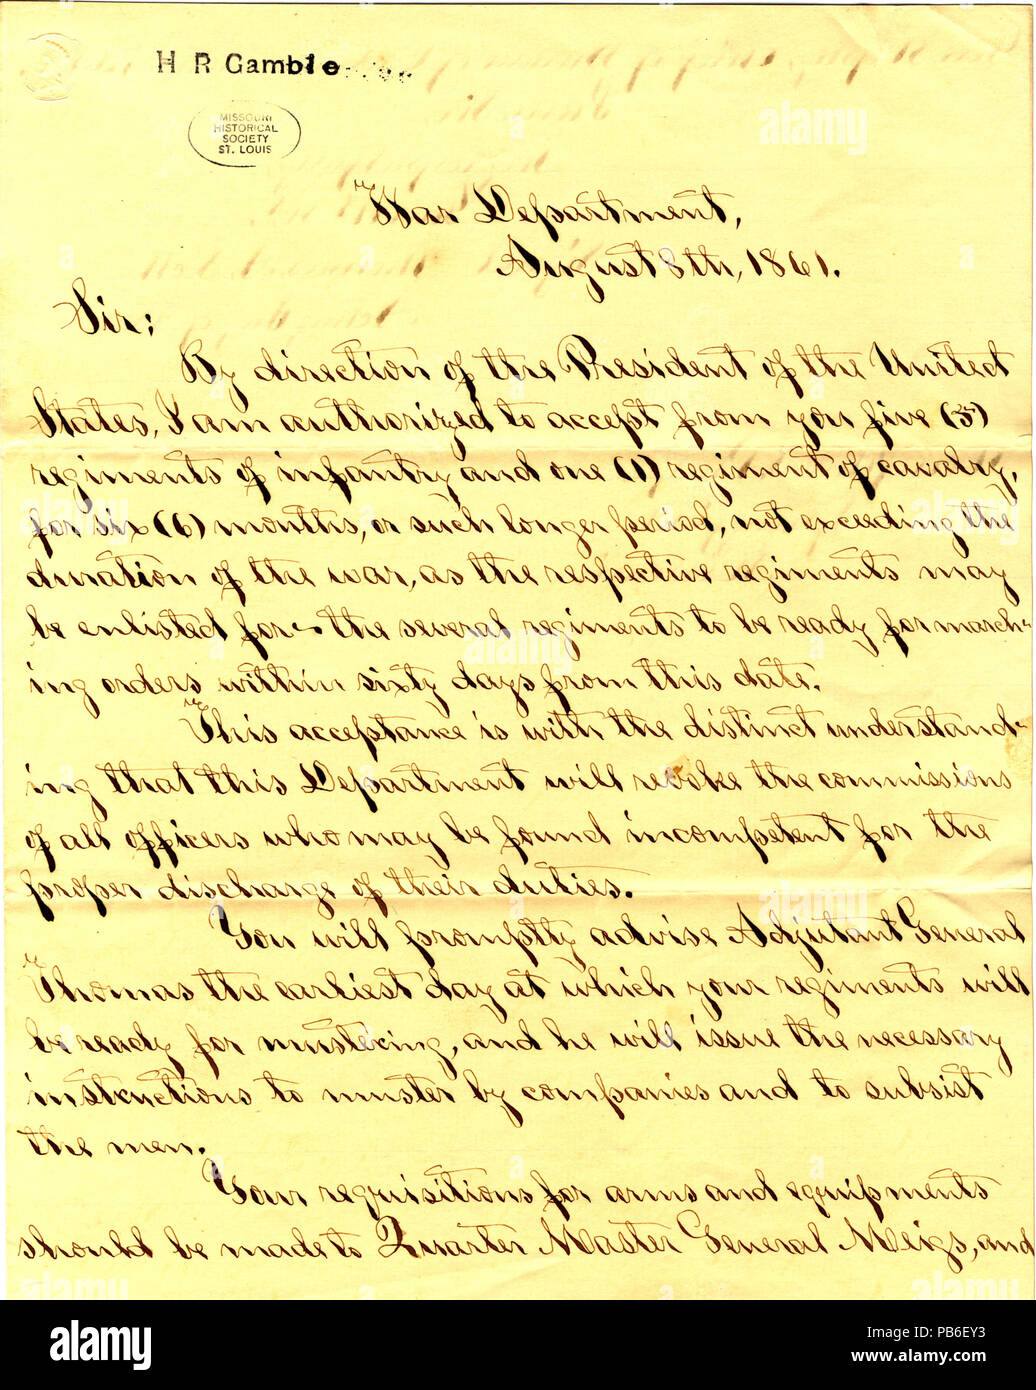 H R Gamble
MISSOURI
HISTORICAL
SOCIETY
ST. LOUIS
War Department,
August 8th, 1861.
Sir:
By direction of the President of the United
States, I am authorized to accept from you five (5)
regiments of infantry and one (1) regiment of cavalry,
for six (6) months, or such longer period, not exceeding the
duration of the war, as the respective regiments may
be enlisted for - the several regiments to be ready for march-
ing orders within sixty days from this date.
This acceptance is with the distinct understand-
ing that this Department will revoke the commissions
of all officers who may be found incompetent for the
proper discharge of their duties.
You will promptly advise Adjutant General
Thomas the earliest day at which your regiments will
be ready for mustering, and he will issue the necessary
instructions to muster by companies and to subsist
the men.
Your requisitions for arms and equipments
should be made to Quarter Master General Meigs, and
alamy
Image ID: PB6EY3
www.alamy.com